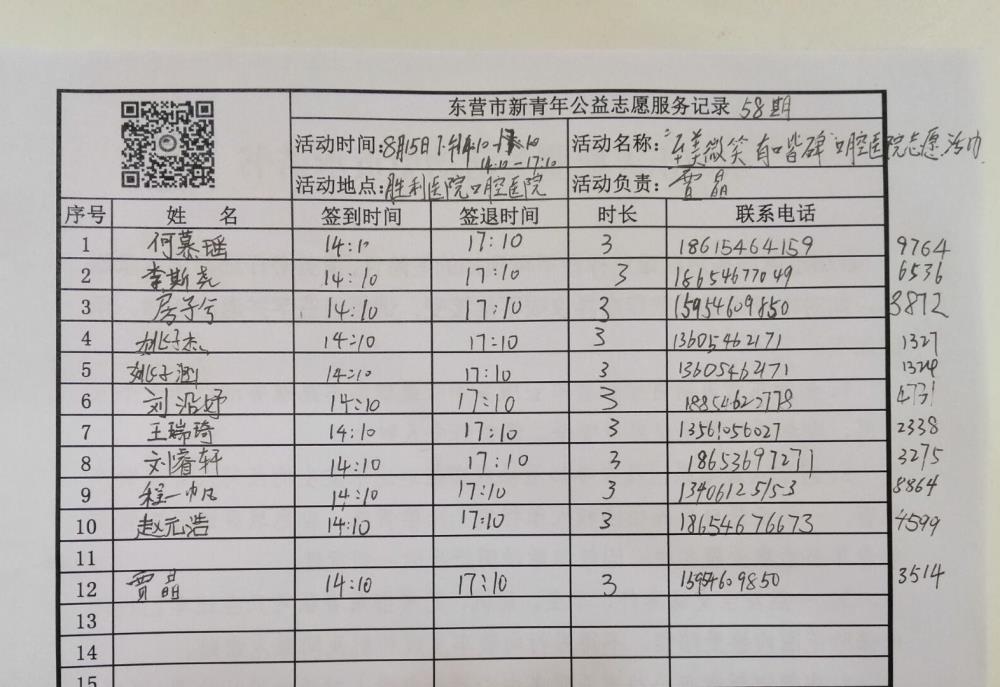 东营市新青年公益志愿服务记录 58期
活动时间:8月15日下午14:10-17:10 活动名称:"至美微笑 有口皆碑"口腔医院志愿活动
14:10-17:10
活动地点:胜利医院口腔医院 活动负责:贾晶
序号 姓 名 签到时间 签退时间 时长 联系电话
1 何慕瑶 14:10 17:10 3 18615464159 9764
2 李斯尧 14:10 17:10 3 18654677049 6536
3 房子兮 14:10 17:10 3 15954609850 3872
4 姚子杰 14:10 17:10 3 13605462171 1327
5 姚子涵 14:10 17:10 3 13605462171 1324
6 刘沿妤 14:10 17:10 3 18854622778 4731
7 王瑞琦 14:10 17:10 3 13561056027 2338
8 刘睿轩 14:10 17:10 3 18653697271 3275
9 程一帆 14:10 17:10 3 13406125153 8864
10 赵元浩 14:10 17:10 3 18654676673 4599
11
12 贾晶 14:10 17:10 3 15954609850 3514
13
14
15